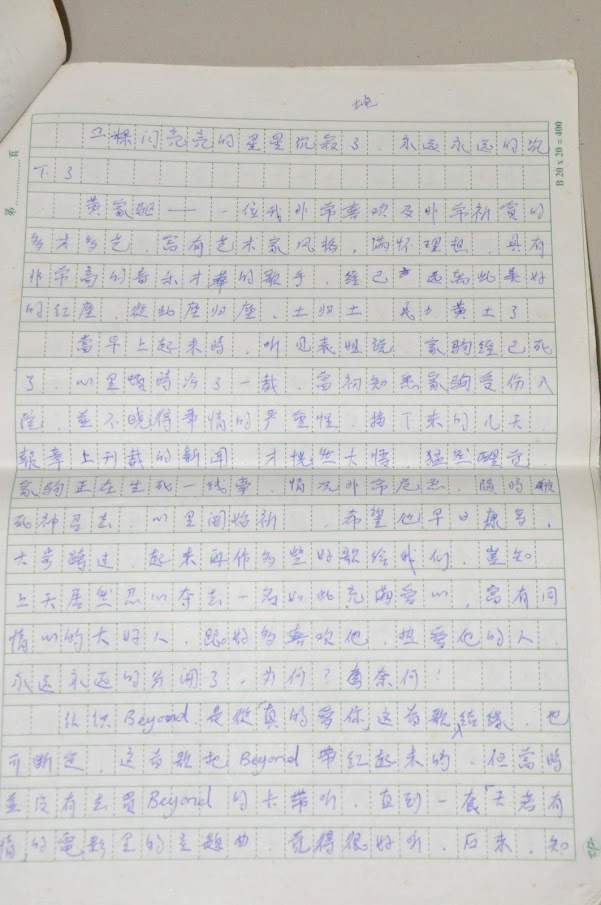 地
一棵闪亮亮的星星沉寂了．永远永远的沉
下了
黄家驹——一位我非常喜欢及非常祈赏的
多才多艺．富有艺术家风格．满怀理想．具有
非常高的音乐才華的歌手．经已远离此美好
的红座．從此座归座．土归土 黄土了
當早上起来時．听见表姐说 家驹经已死
了．心里頓時冷了一截．當初知悉家驹受伤入
院．並不晓得事情的严重性．接下来的几天
報章上刊载的新闻 才恍然大悟．猛然醒觉
家驹正在生死一线牵 情况非常危急．随時被
死神召去．心里開始祈 希望他早日康
大步跨过．起来再作多些好歌给我们．豈知
上天居然忍心夺去一名如此充满爱心．富有同
情心的大好人．跟好多喜欢他 热爱他的人
永远永远的分開了．为何？奈何！
认识Beyond 是從「真的爱你」这首歌結緣．也
可断定．这首歌把Beyond 带红起来的．但當時
並没有去買Beyond 的卡带听．直到一套「天若有
情」的電影里的主題曲．觉得很好听．后来．知
B 20 x 20 = 400
第 頁